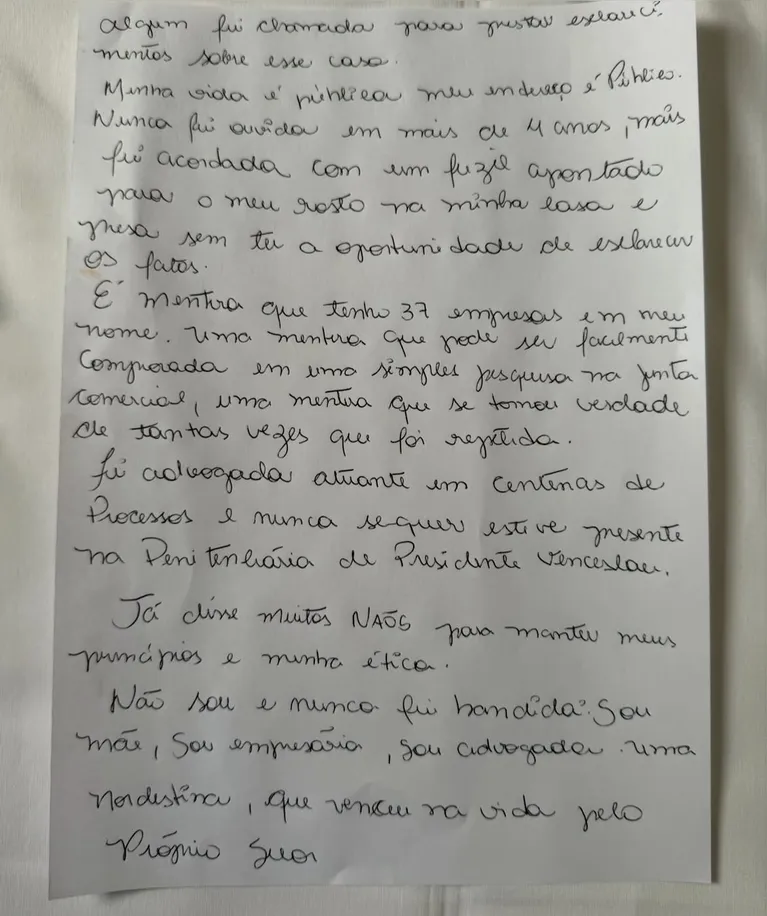 algum fui chamada para prestar esclareci
mentos sobre esse caso.
Minha vida é pública meu endereço é Público.
Nunca fui ouvida em mais de 4 anos, mais
fui acordada com um fuzil apontado
para o meu rosto na minha casa e
presa sem ter a oportunidade de esclarecer
os fatos.
É mentira que tenho 37 empresas em meu
nome. Uma mentira que pode ser facilmente
Comprovada em uma simples pesquisa na junta
comercial, uma mentira que se tornou verdade
de tantas vezes que foi repetida.
fui advogada atuante em centenas de
Processos e nunca sequer estive presente
na Penitenciária de Presidente Venceslau.
Já disse muitos NAÕS para manter meus
princípios e minha ética.
Não sou e nunca fui bandida. Sou
mãe, Sou empresária, sou advogada. uma
nordestina, que venceu na vida pelo
Próprio Suor